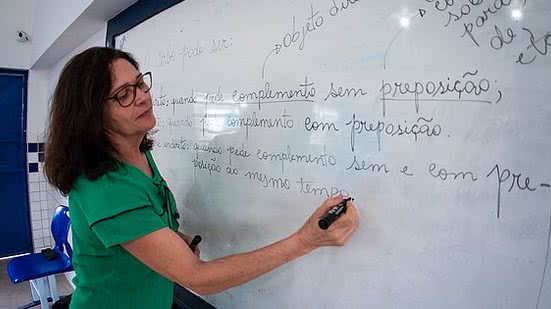 objeto dir
pode ser:
quando pede complemento sem preposição;
quando pede complemento com preposição.
indireto: quando pede complemento sem e com pre-
posição ao mesmo tempo